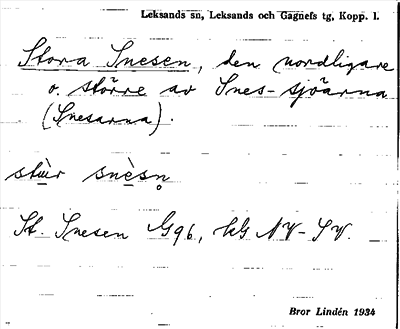 Leksands sn, Leksands och Gagnefs tg, Kopp. l.
Stora Snesen, den nordligare
o. större av Snes-sjöarna
(Snesarna).
stùr snèsn̥
St. Snesen G96, hG NV-SV.
Bror Lindén 1934